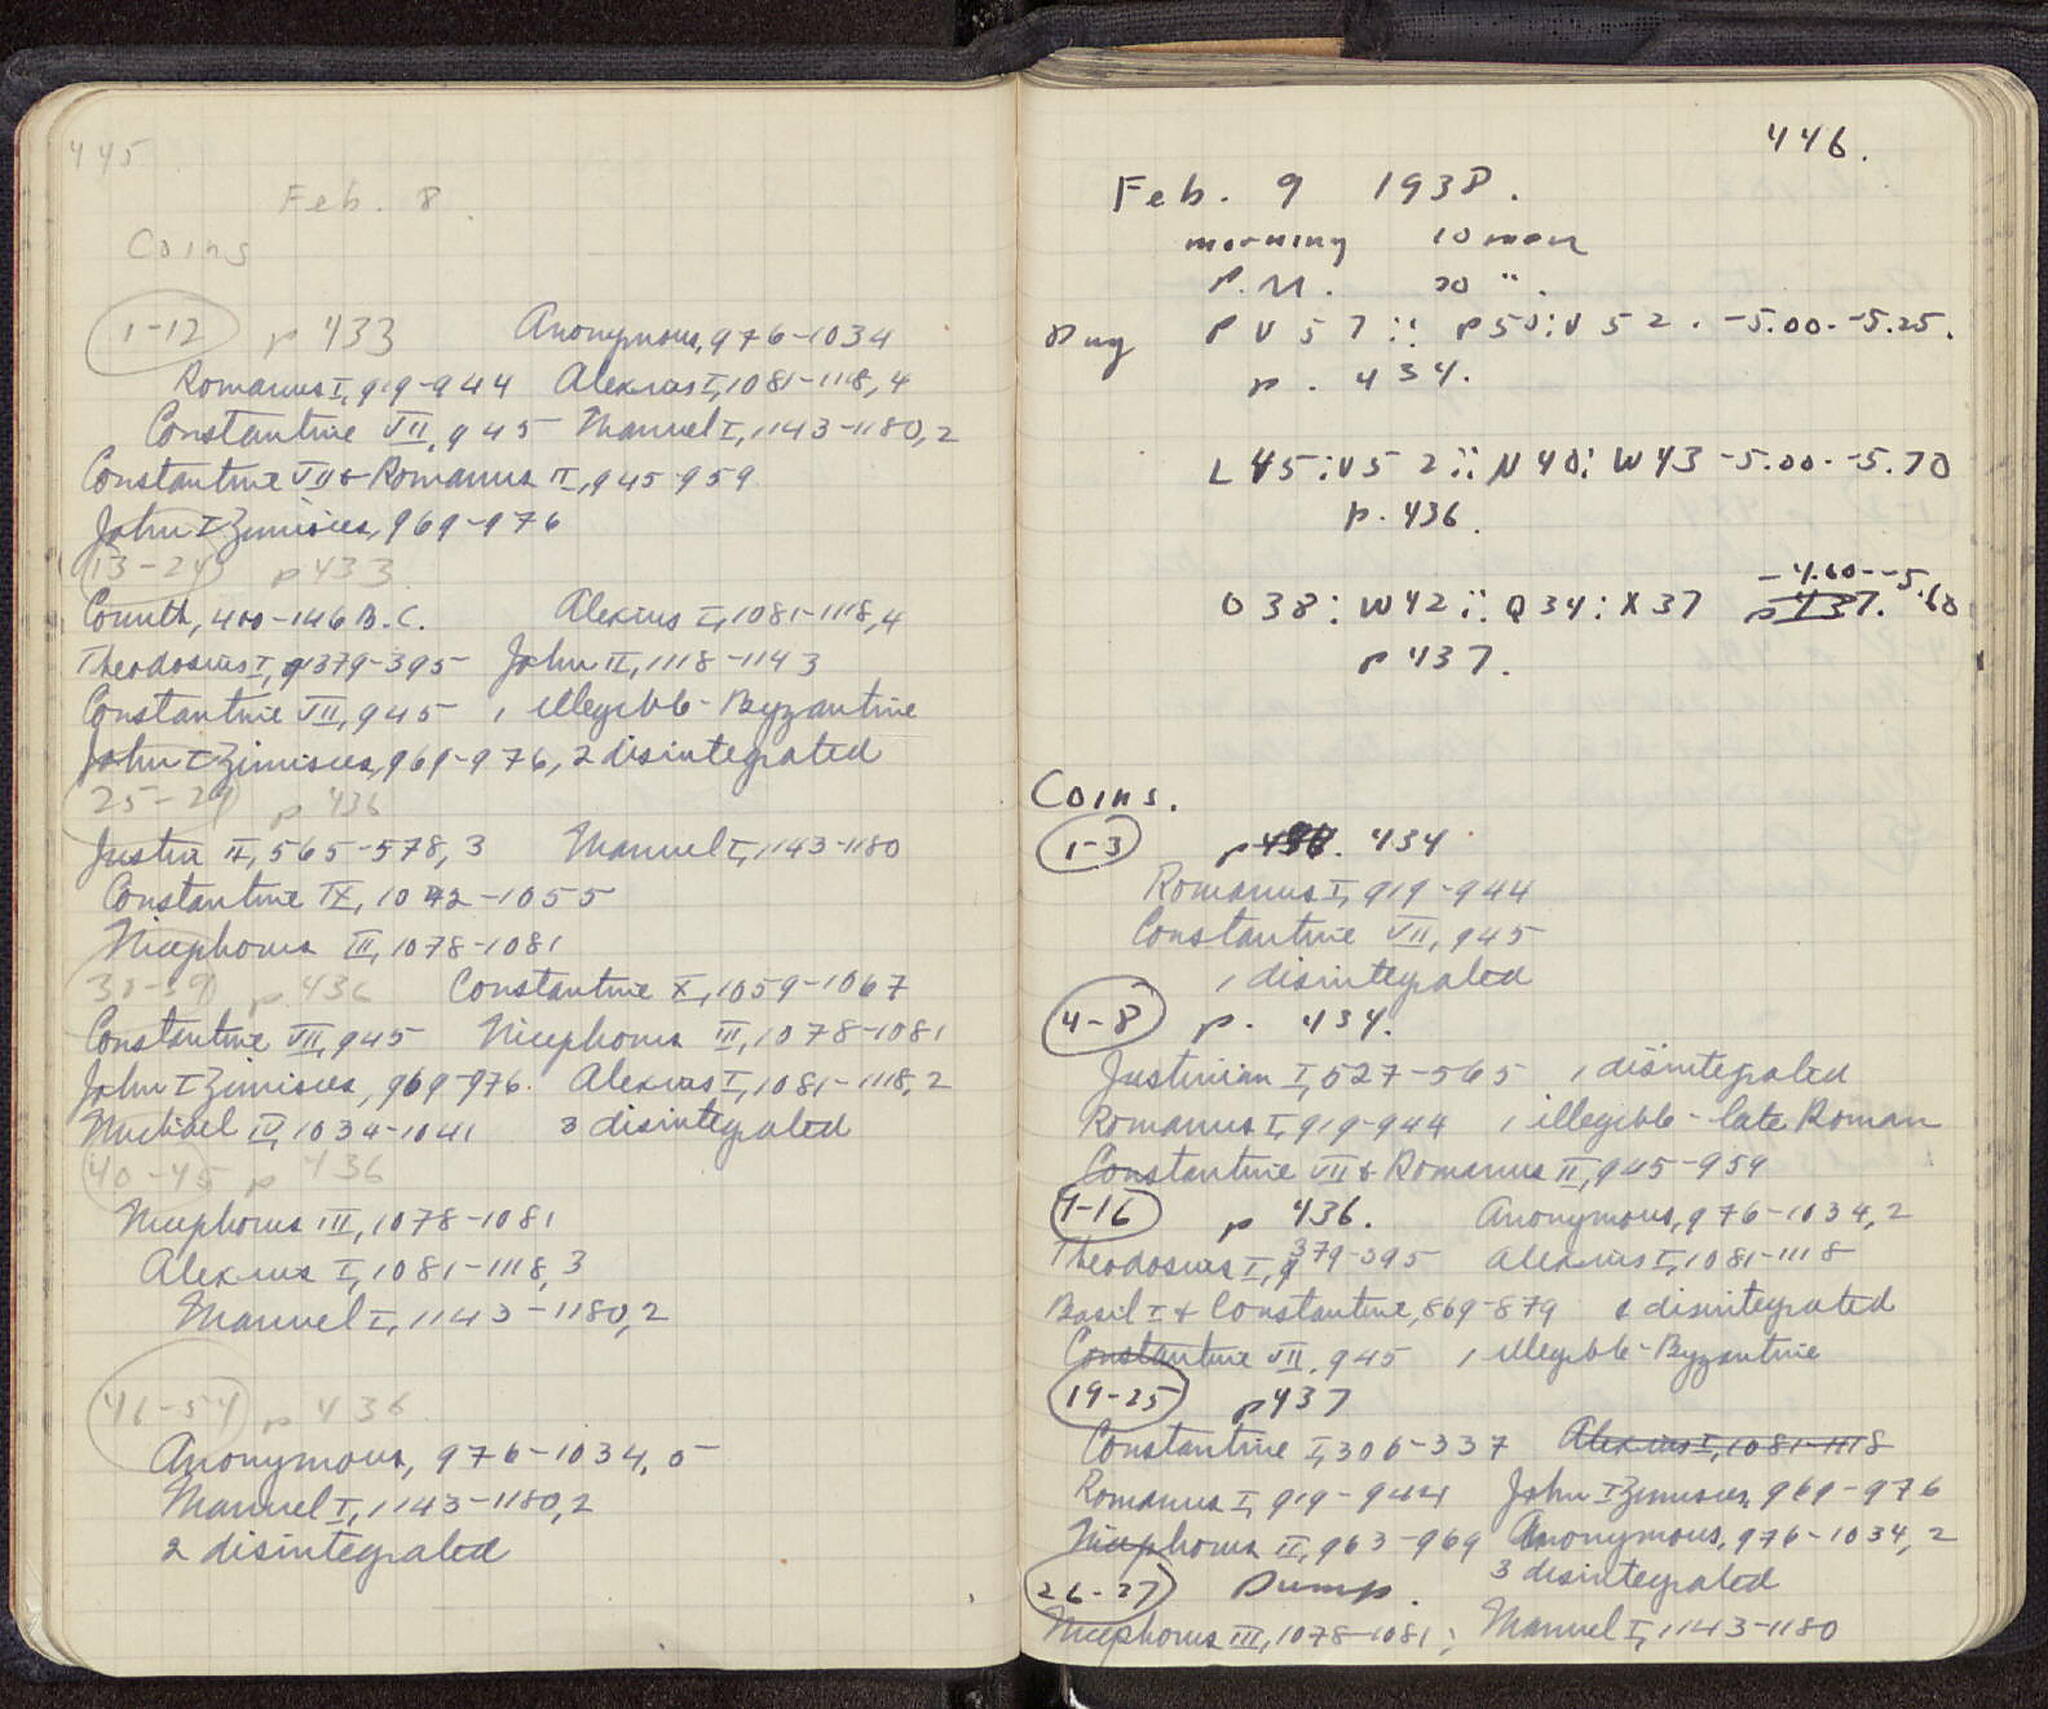 445
Feb. 8.
Coins
1-12 p 433 Anonymous, 976-1034
Romanus I, 919-944 Alexius I, 1081-1118, 4
Constantine VII, 945 Manuel I, 1143-1180, 2
Constantine VII & Romanus II, 945-959
John I Zimisces, 969-976
13-24 p 433.
Corinth, 400-146 B.C. Alexius I, 1081-1118, 4
Theodosius I, 379-395 John II, 1118-1143
Constantine VII, 945 1 illegible - Byzantine
John I Zimisces, 969-976, 2 disintegrated
25-29 p 436
Justin II, 565-578, 3 Manuel I, 1143-1180
Constantine IX, 1042-1055
Nicephorus III, 1078-1081
30-39 p. 436 Constantine X, 1059-1067
Constantine VII, 945 Nicephorus III, 1078-1081
John I Zimisces, 969-976. Alexius I, 1081-1118, 2
Michael IV, 1034-1041 3 disintegrated
40-45 p 436
Nicephorus III, 1078-1081
Alexius I, 1081-1118, 3
Manuel I, 1143-1180, 2
46-54 p 436
Anonymous, 976-1034, 5
Manuel I, 1143-1180, 2
2 disintegrated
446.
Feb. 9 1938.
morning 10 men
P.M. 20 ".
Dug P V 57 :: P50:V 52. -5.00--5.25.
p. 434.
L 45:V52:: N 40: W 43 -5.00--5.70
p. 436.
-4.60--5.60
O 38: W42:: Q 34: X 37 p 437.
p 437.
Coins.
1-3 p 436. 434
Romanus I, 919-944
Constantine VII, 945
1 disintegrated
4-8 p. 434.
Justinian I, 527-565 1 disintegrated
Romanus I, 919-944 1 illegible - late Roman
Constantine VII & Romanus II, 945-959
9-16 p 436. Anonymous, 976-1034, 2
Theodosius I, 379-395 Alexius I, 1081-1118
Basil I & Constantine, 869-879 disintegrated
Constantine VII, 945 1 illegible - Byzantine
19-25 p 437
Constantine I, 306-337 Alexius I, 1081-1118
Romanus I, 919-944 John I Zimisces, 969-976
Nicephorus II, 963-969 Anonymous, 976-1034, 2
3 disintegrated
26-27 Dump.
Nicephorus III, 1078-1081; Manuel I, 1143-1180